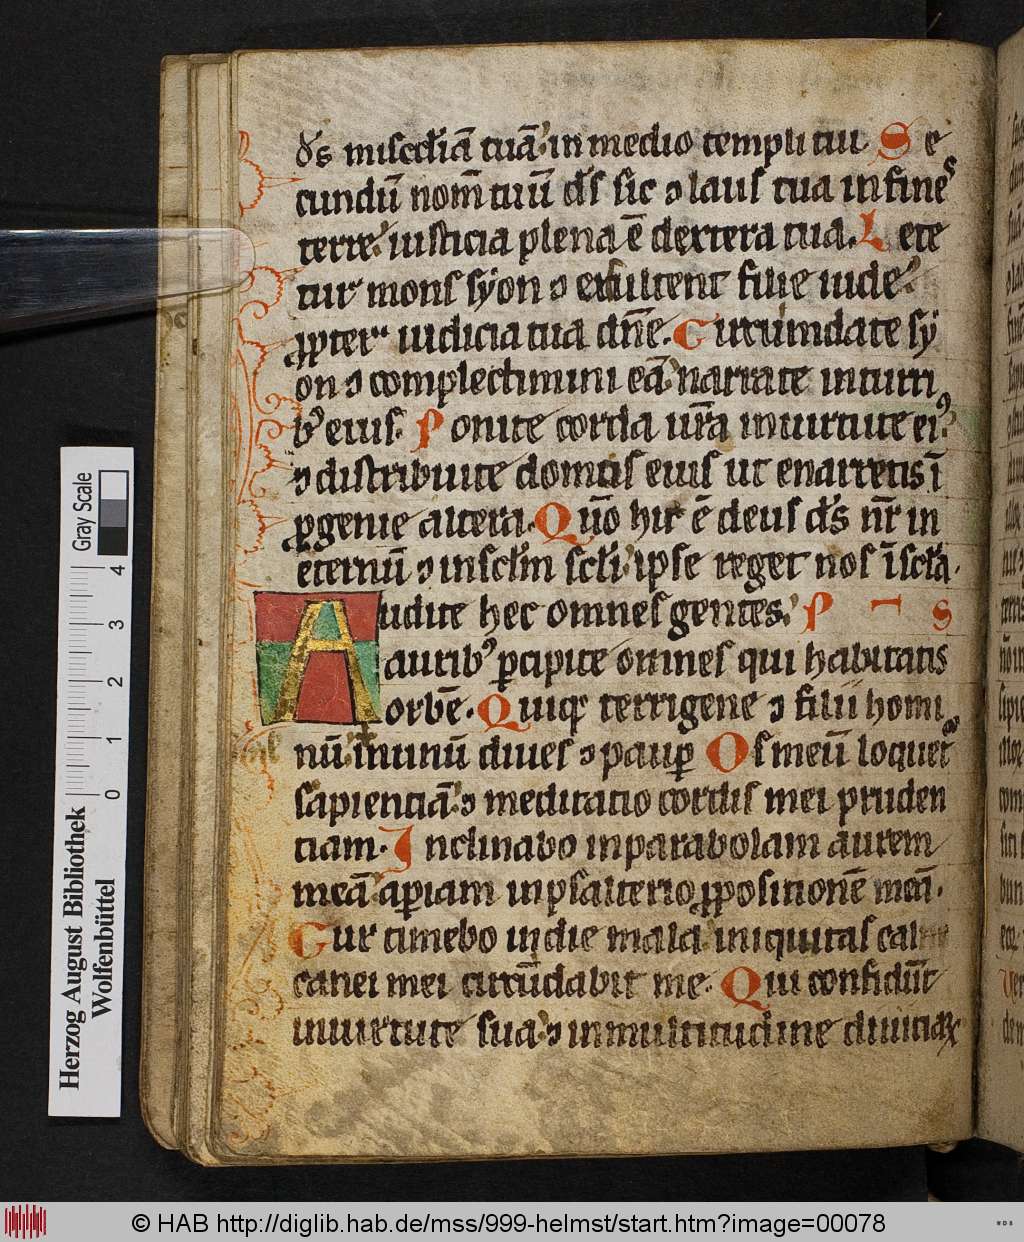 ds misc̄diā tuā in medio templi tui. Se
cundū nom̄ tuū ds̄ sic ⁊ laus tua in fines
terre iusticia plena ē dextera tua. Lete
tur mons syon ⁊ exultent filie iude
ꝓpter iudicia tua dn̄e. Circumdate sy
on ⁊ complectimini eā narrate in turri
bꝰ eius. Ponite corda ur̄a in uirtute eiꝰ
⁊ distribuite domus eius ut enarretis ī
ꝓgenie altera. Qūo hic ē deus ds̄ nr̄ in
eternū ⁊ in sc̄lm sc̄li ipse reget nos ī sc̄la.
Audite hec omnes gentes. P I S
auribꝰ ꝑcipite omnes qui habitatis
orbē. Quiqꝫ terrigene ⁊ filii homi
nū in unū diues ⁊ pauꝑ Os meū loquet᷑
sapienciā ⁊ meditatio cordis mei pruden
ciam. Inclinabo in parabolam aurem
meā aꝑiam in psalterio ꝓposicionē meā.
Cur timebo in die mala iniquitas cal
canei mei circūdabit me. Qui confidūt
in uirtute sua ⁊ in multitudine diuiciaꝝ
Herzog August Bibliothek
Wolfenbüttel
0 1 2 3 4
Gray Scale
© HAB http://diglib.hab.de/mss/999-helmst/start.htm?image=00078